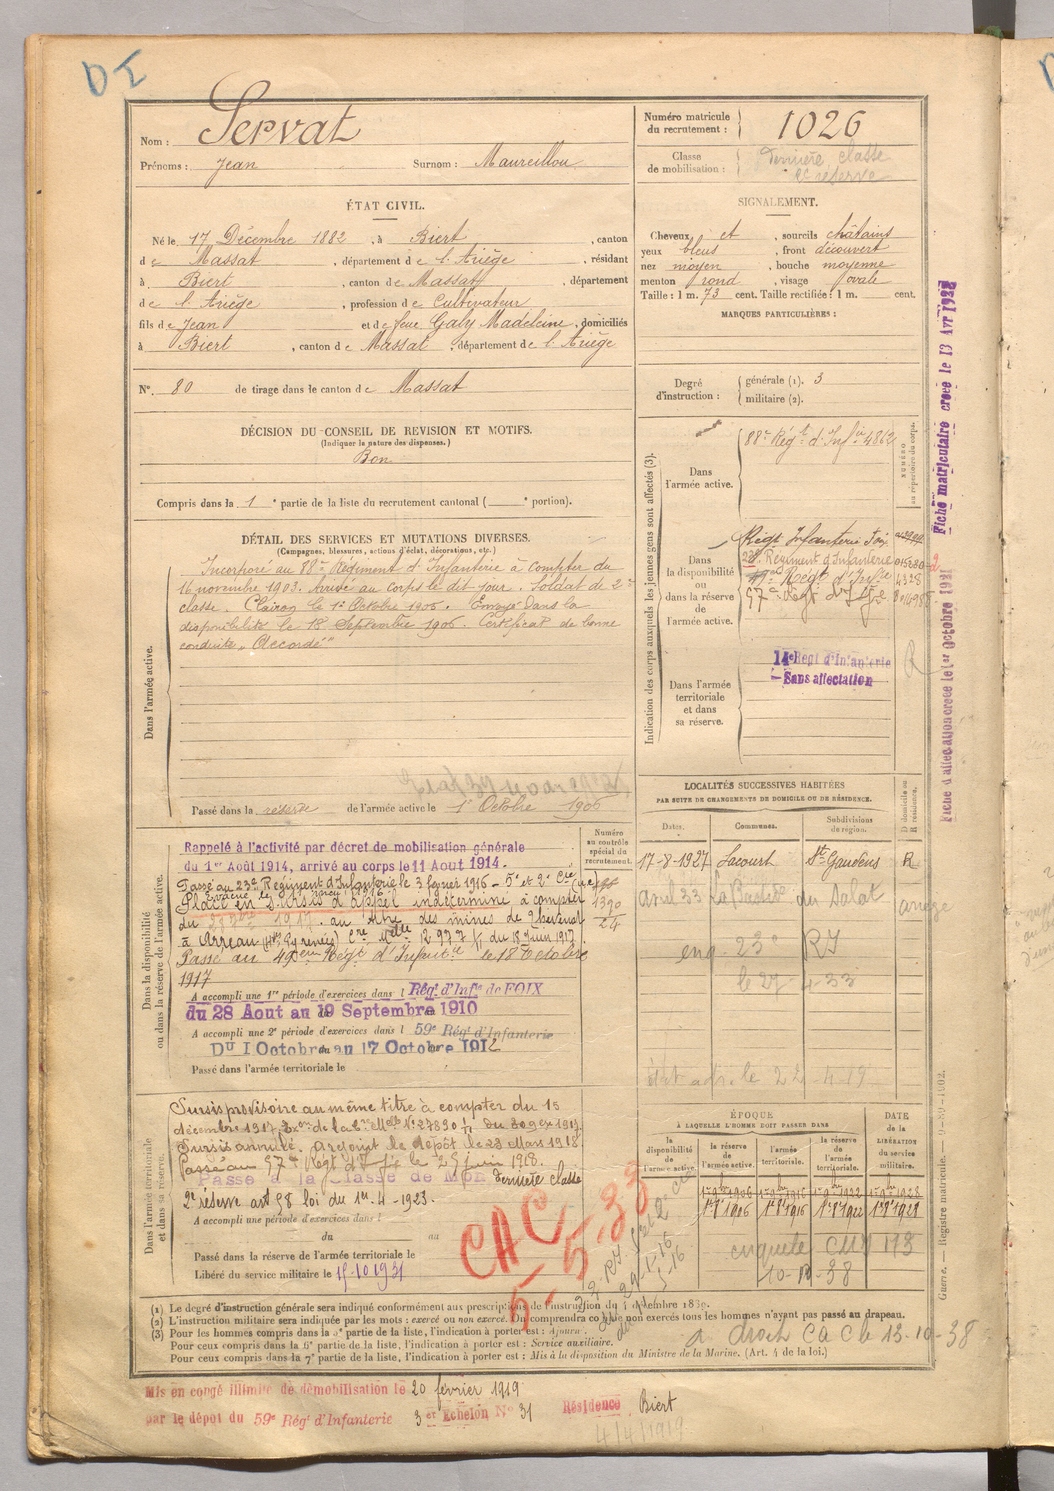 DI
Nom : Servat
Prénoms : Jean Surnom : Maureillou
Numéro matricule du recrutement : 1026
Classe de mobilisation : dernière classe 2e réserve
ÉTAT CIVIL.
Né le 17 Décembre 1882, à Biert, canton
de Massat, département de l'Ariège, résidant
à Biert, canton de Massat, département
de l'Ariège, profession de Cultivateur
fils de Jean et de feue Galy Madeleine, domiciliés
à Biert, canton de Massat, département de l'Ariège
N° 80 de tirage dans le canton de Massat
SIGNALEMENT.
Cheveux et, sourcils châtains
yeux bleus, front découvert
nez moyen, bouche moyenne
menton rond, visage ovale
Taille : 1 m. 73 cent. Taille rectifiée : 1 m. cent.
MARQUES PARTICULIÈRES :
Degré d'instruction : générale (1). 3
militaire (2).
DÉCISION DU CONSEIL DE REVISION ET MOTIFS.
(Indiquer la nature des dispenses.)
Bon
Compris dans la 1e partie de la liste du recrutement cantonal ( e portion).
DÉTAIL DES SERVICES ET MUTATIONS DIVERSES.
(Campagnes, blessures, actions d'éclat, décorations, etc.)
Dans l'armée active.
Incorporé au 88e Régiment d'Infanterie à compter du
16 novembre 1903. Arrivé au corps le dit jour. Soldat de 2e
classe. Clairon le 1er Octobre 1905. Envoyé dans la
disponibilité le 18 Septembre 1906. Certificat de bonne
conduite "Accordé"
Passé dans la réserve de l'armée active le 1er Octobre 1906
Indication des corps auxquels les jeunes gens sont affectés (3).
NUMÉRO au répertoire du corps.
Dans l'armée active.
88e Régt d'Infie 4862
Dans la disponibilité ou dans la réserve de l'armée active.
Régt Infanterie Foix
23e Régiment d'Infanterie 015280
49e Régt d'Infie 4328
57e Régt d'Infie
Dans l'armée territoriale et dans sa réserve.
14e Régt d'Infanterie
Sans affectation
R
Fiche matriculaire créée le 13 Avr 1928
Fiche d'affectation créée le 1er Octobre 1921
Dans la disponibilité ou dans la réserve de l'armée active.
Numéro au contrôle spécial du recrutement.
1390
24
Rappelé à l'activité par décret de mobilisation générale
du 1er Août 1914, arrivé au corps le 11 Aout 1914.
Passé au 23e Régiment d'Infanterie le 3 février 1916
Placé en sursis d'appel indéterminé à compter
du 1917 au titre des mines de
à Arreau (Htes Pyrénées) 12977 du 18 Juin 1917
Passé au 49ème Régt d'Infantie le 18 Octobre
1917
A accompli une 1re période d'exercices dans l Régt d'Infie de FOIX
du 28 Aout au 19 Septembre 1910
A accompli une 2e période d'exercices dans l 59e Régt d'Infanterie
Du 1 Octobre au 17 Octobre 1912
Passé dans l'armée territoriale le
LOCALITÉS SUCCESSIVES HABITÉES
PAR SUITE DE CHANGEMENTS DE DOMICILE OU DE RÉSIDENCE.
Dates. Communes. Subdivisions de région. D domicile ou R résidence.
17-8-1927 Lacourt St Gaudens R
Avril 33 La Bastide du Salat Ariège
enq. 23e RI
le 27-4-33
Dans l'armée territoriale et dans sa réserve.
Sursis provisoire au même titre à compter du 15
décembre 1917 N° 27890 du 30 9bre 1917
Sursis annulé. A rejoint le dépôt le 23 Mars 1918
Passé au 57e Régt d'Infie le 25 juin 1918.
Passé à la Classe de Mon dernière classe
2e réserve art 58 loi du 1er-4-1923.
A accompli une période d'exercices dans l
du au
Passé dans la réserve de l'armée territoriale le
Libéré du service militaire le 15-10-1931
CAC
5-5-33
ÉPOQUE
À LAQUELLE L'HOMME DOIT PASSER DANS
la disponibilité de l'armée active.
la réserve de l'armée active.
l'armée territoriale.
la réserve de l'armée territoriale.
DATE DE LA LIBÉRATION du service militaire.
1er 8bre 1906 1er 8bre 1916 1er 8bre 1922 1er 8bre 1928
enquete CM
Guerre. — Registre matricule.
(1) Le degré d'instruction générale sera indiqué conformément aux prescriptions de l'instruction du
(2) L'instruction militaire sera indiquée par les mots : exercé ou non exercé. On comprendra comme non exercés tous les hommes n'ayant pas passé au drapeau.
(3) Pour les hommes compris dans la 5e partie de la liste, l'indication à porter est : Ajourné.
Pour ceux compris dans la 6e partie de la liste, l'indication à porter est : Service auxiliaire.
Pour ceux compris dans la 7e partie de la liste, l'indication à porter est : Mis à la disposition du Ministre de la Marine. (Art. 4 de la loi.)
a droit CAC le 13-10-38
Mis en congé illimité de démobilisation le 20 février 1919
par le dépôt du 59e Rég. d'Infanterie 3e Echelon N° 31 Résidence Biert
4/4/1919